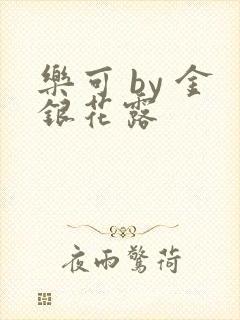 樂可 by 金
銀花露
夜雨驚荷